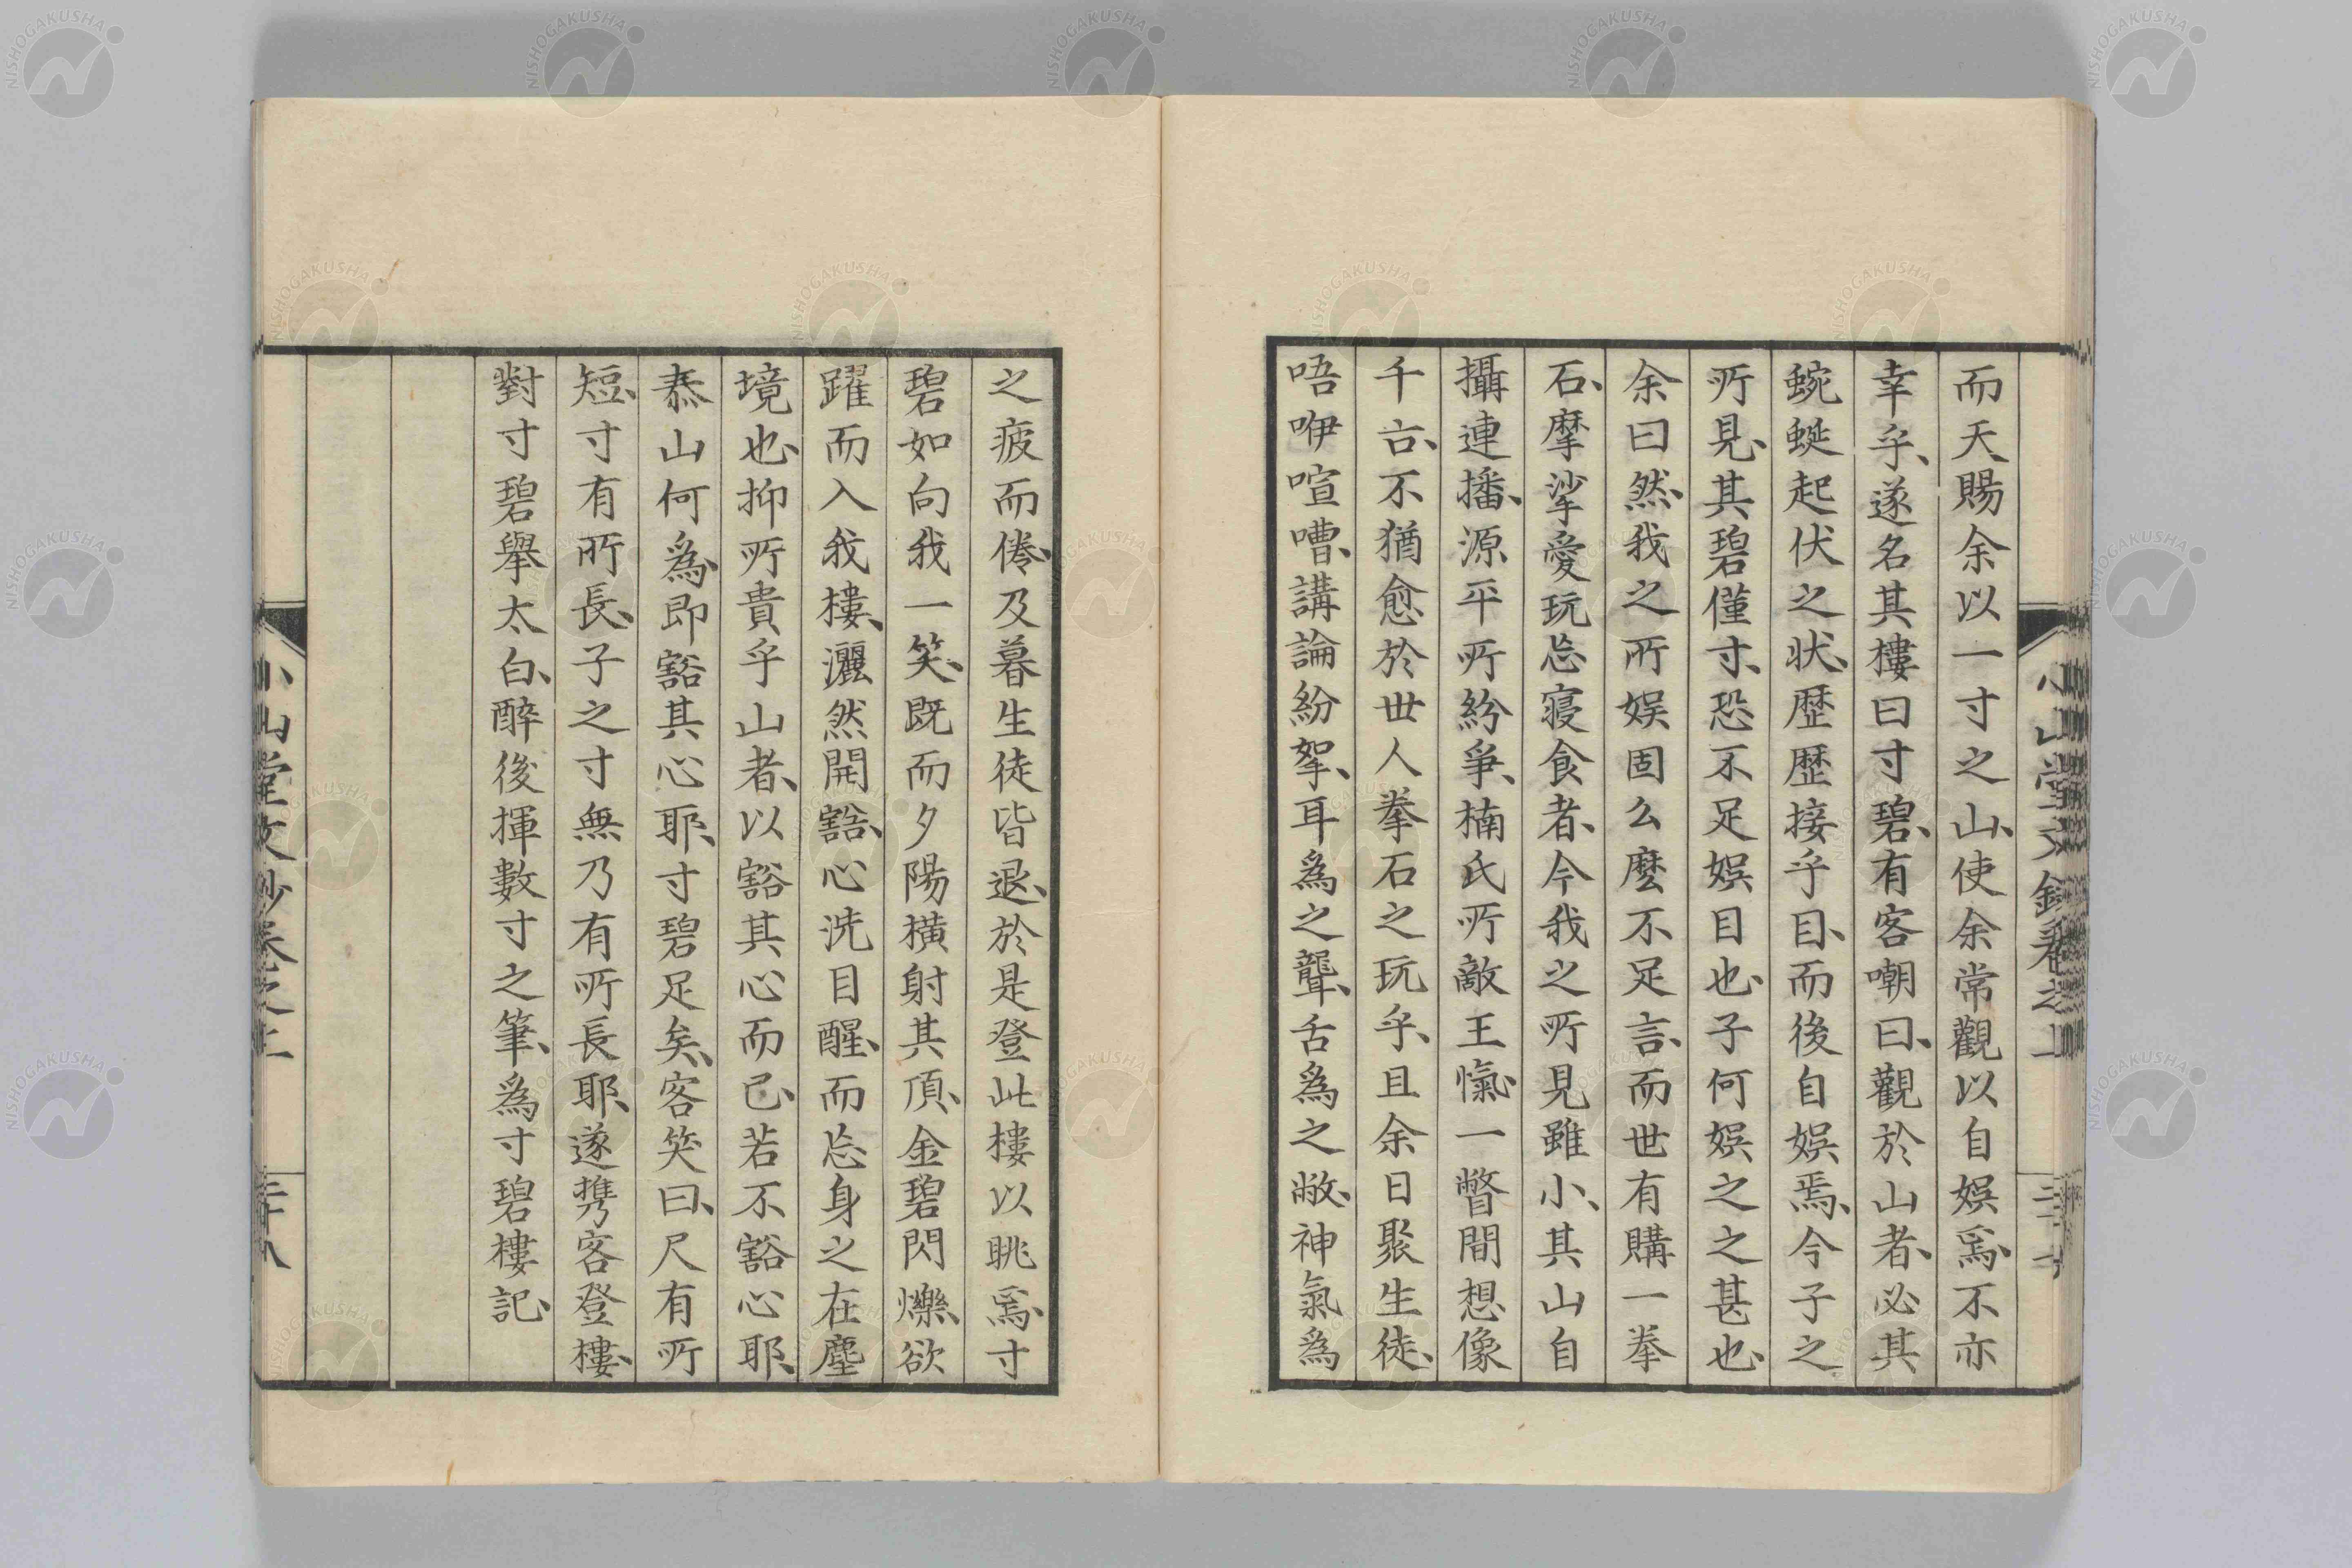 而天賜余以一寸之山、使余常觀以自娯焉、不亦
幸乎、遂名其樓曰寸碧、有客嘲曰、觀於山者、必其
蜿蜒起伏之状、歴歴接乎目、而後自娯焉、今子之
所見、其碧僅寸、恐不足娯目也、子何娯之之甚也、
余曰然、我之所娯固么麼不足言、而世有購一拳
石、摩挲愛玩忘寢食者、今我之所見雖小、其山自
攝連播、源平所紛爭、楠氏所敵王愾、一瞥間想像
千古、不猶愈於世人拳石之玩乎、且余日聚生徒、
唔咿喧嘈、講論紛拏、耳爲之聾、舌爲之敝、神氣爲
小山堂文鈔卷之上
之疲而倦、及暮生徒皆退、於是登此樓以眺焉、寸
碧如向我一笑、既而夕陽橫射其頂、金碧閃爍、欲
躍而入我樓、灑然開豁、心洗目醒、而忘身之在塵
境也、抑所貴乎山者、以豁其心而已、若不豁心耶、
泰山何爲、即豁其心耶、寸碧足矣、客笑曰、尺有所
短、寸有所長、子之寸無乃有所長耶、遂携客登樓、
對寸碧舉太白、醉後揮數寸之筆、爲寸碧樓記、
小山堂文鈔卷之上
三十八
NISHOGAKUSHA